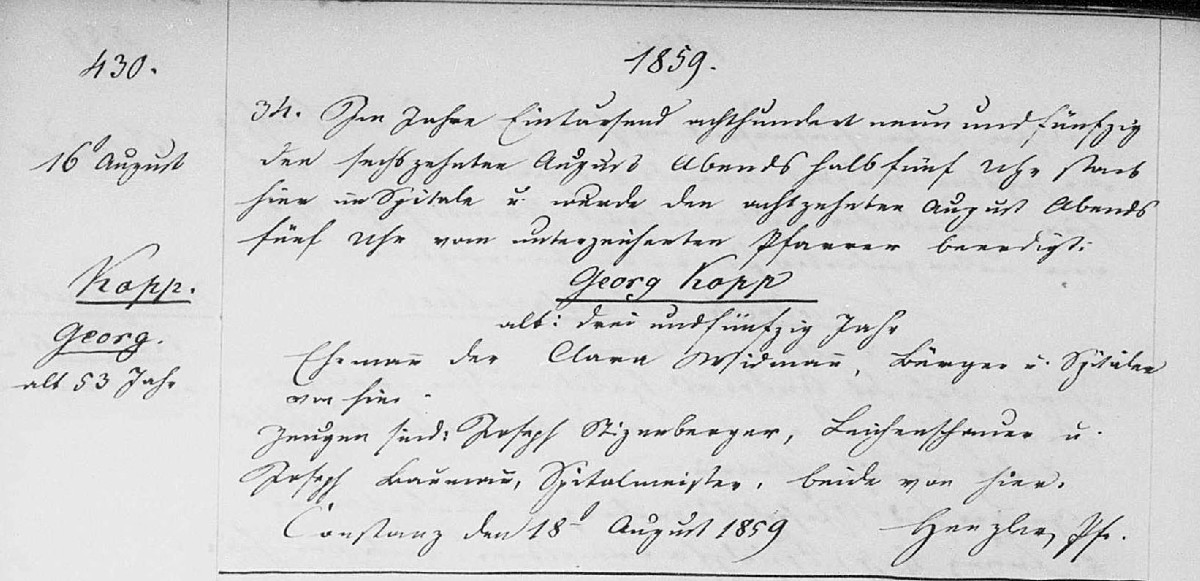 430.
1859.
16t August
Kopp.
Georg.
alt 53 Jahr
34. Im Jahre Eintausend achthundert neun und fünfzig
den sechszehnten August Abends halb fünf Uhr starb
hier im Spitale u. wurde den achtzehnten August Abends
fünf Uhr vom unterzeichneten Pfarrer beerdigt:
Georg Kopp
alt: drei und fünfzig Jahr
Ehemañ der Clara Widmañ, Bürger u. Spitäler
von hier.
Zeugen sind: Joseph Stizenberger, Leichenschauer u.
Joseph Baumañ, Spitalmeister, beide von hier.
Constanz den 18t August 1859 Pfr.